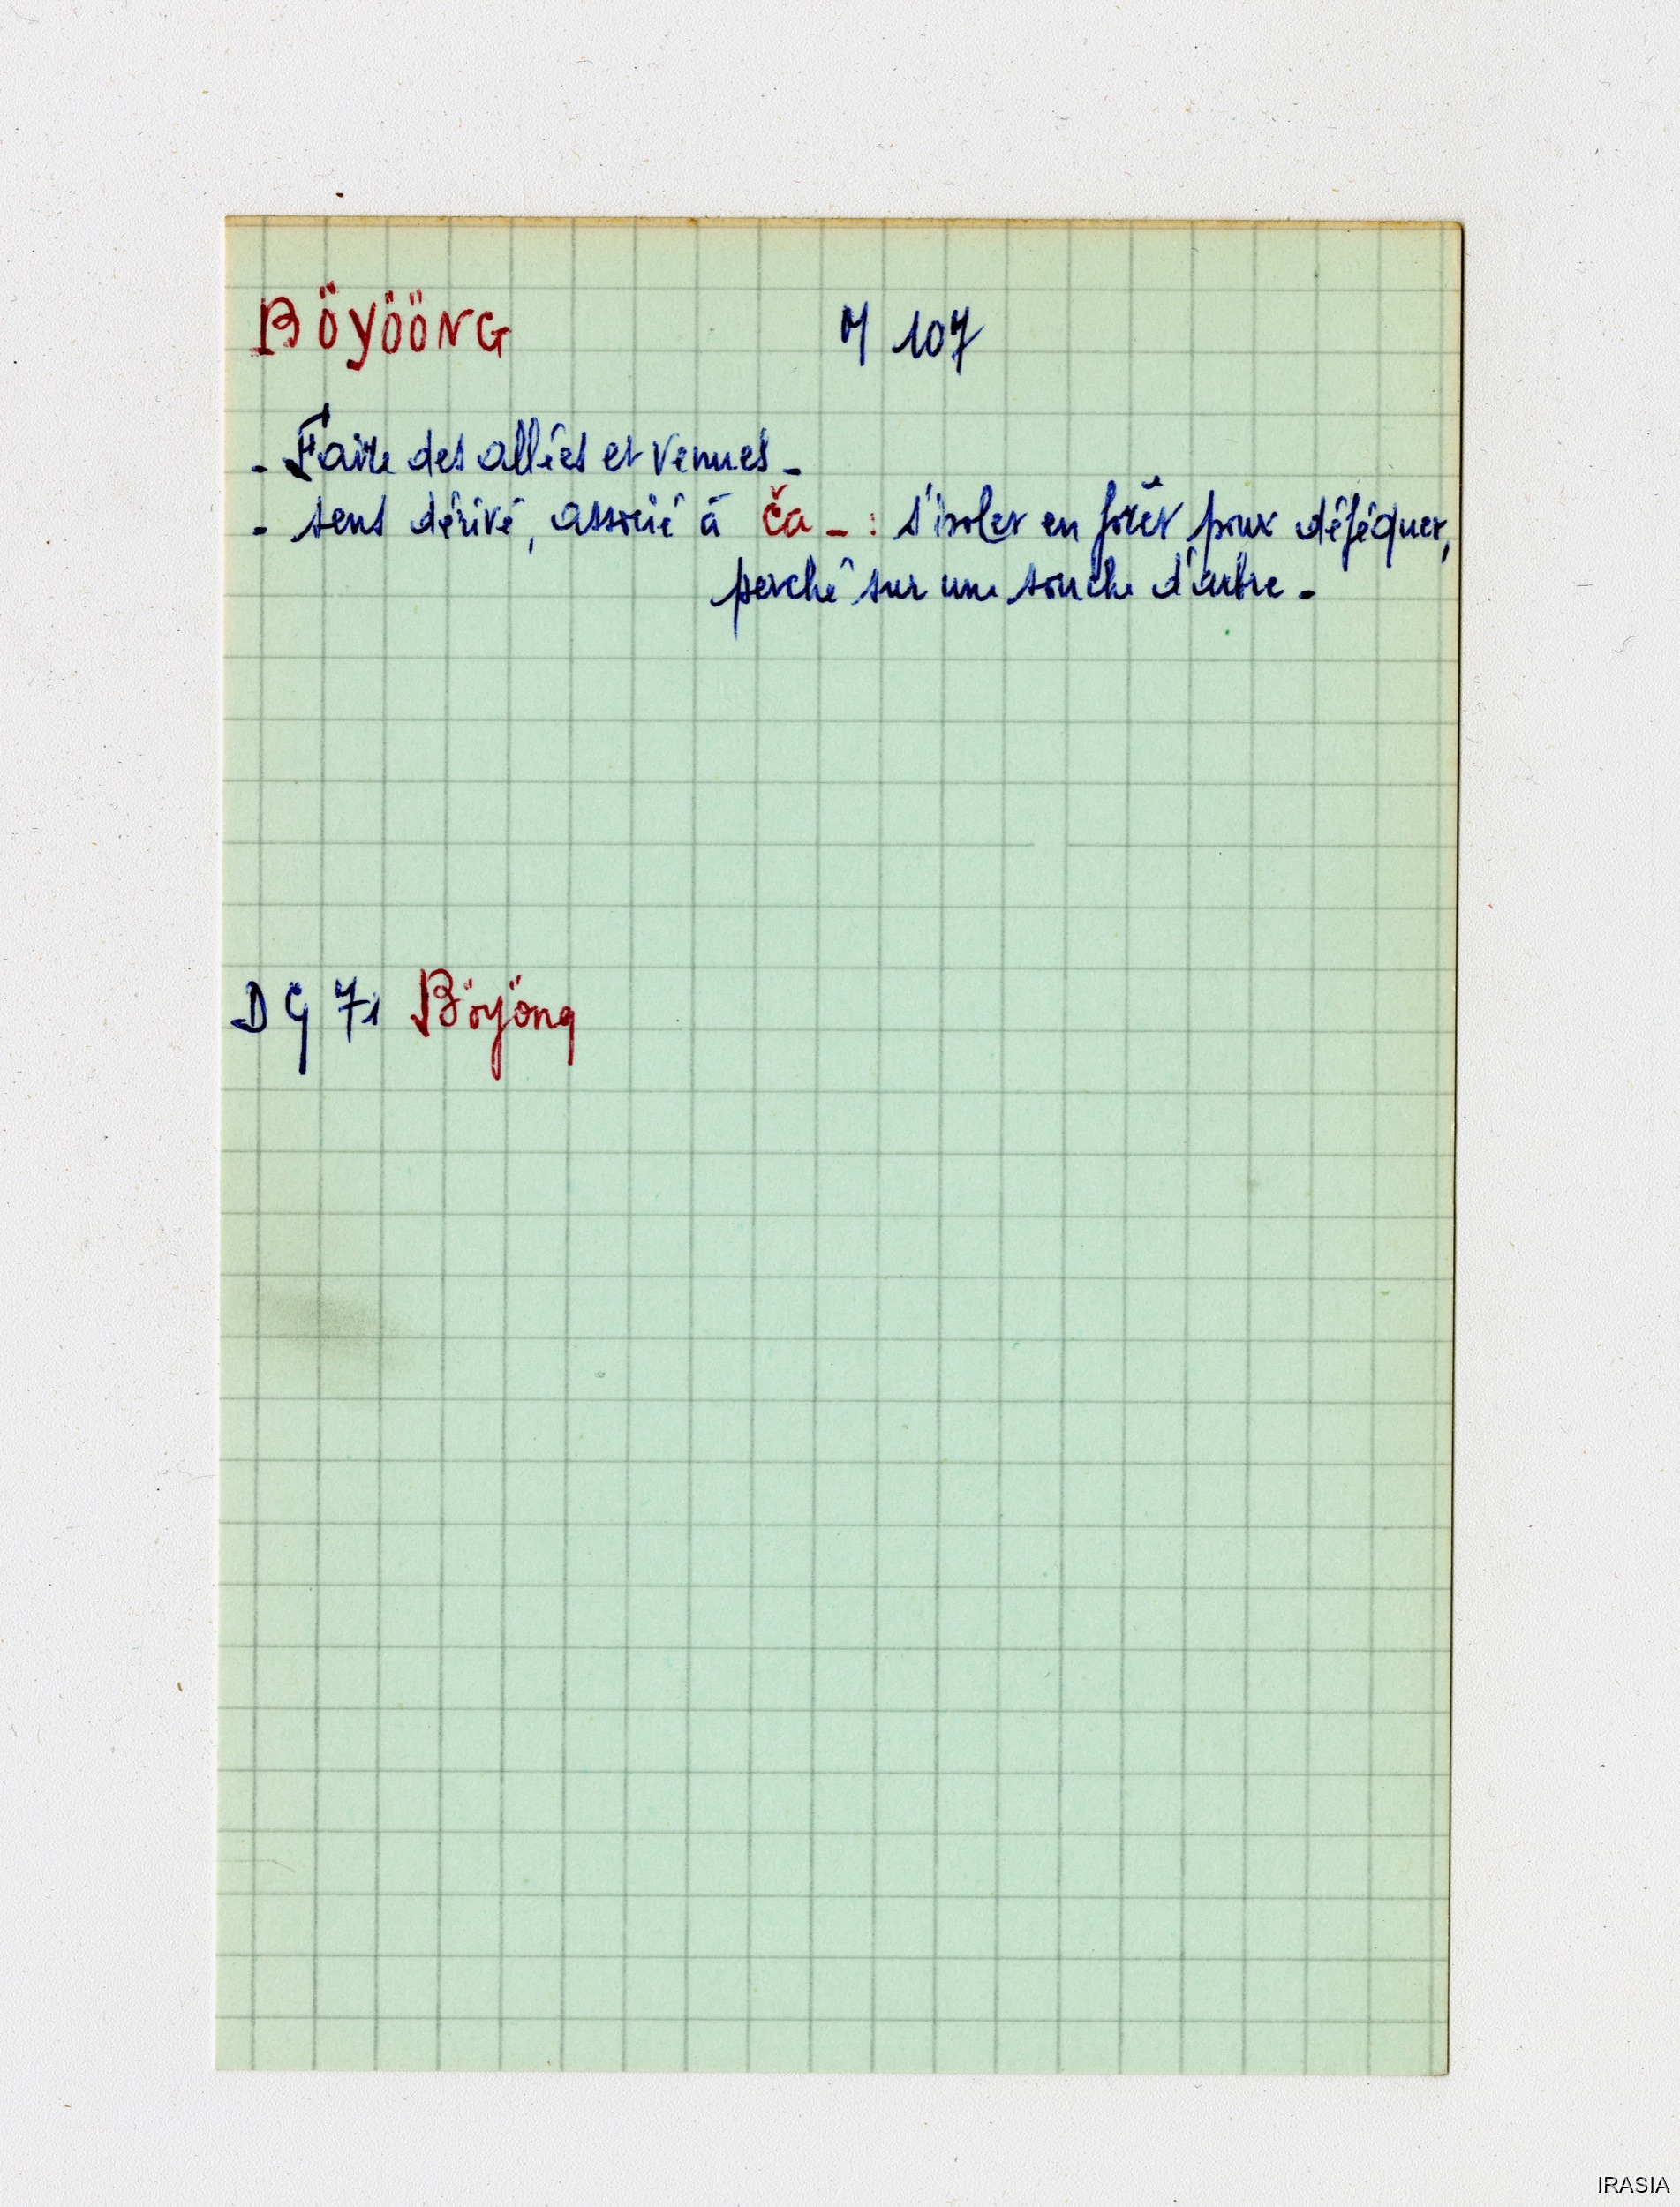 BÖYÖÖNG M 107
- Faire des allées et venues -
- sens dérivé, associé à ča - : s'isoler en forêt pour déféquer,
perché sur une souche d'arbre -
DG 71 Böyöng
IRASIA